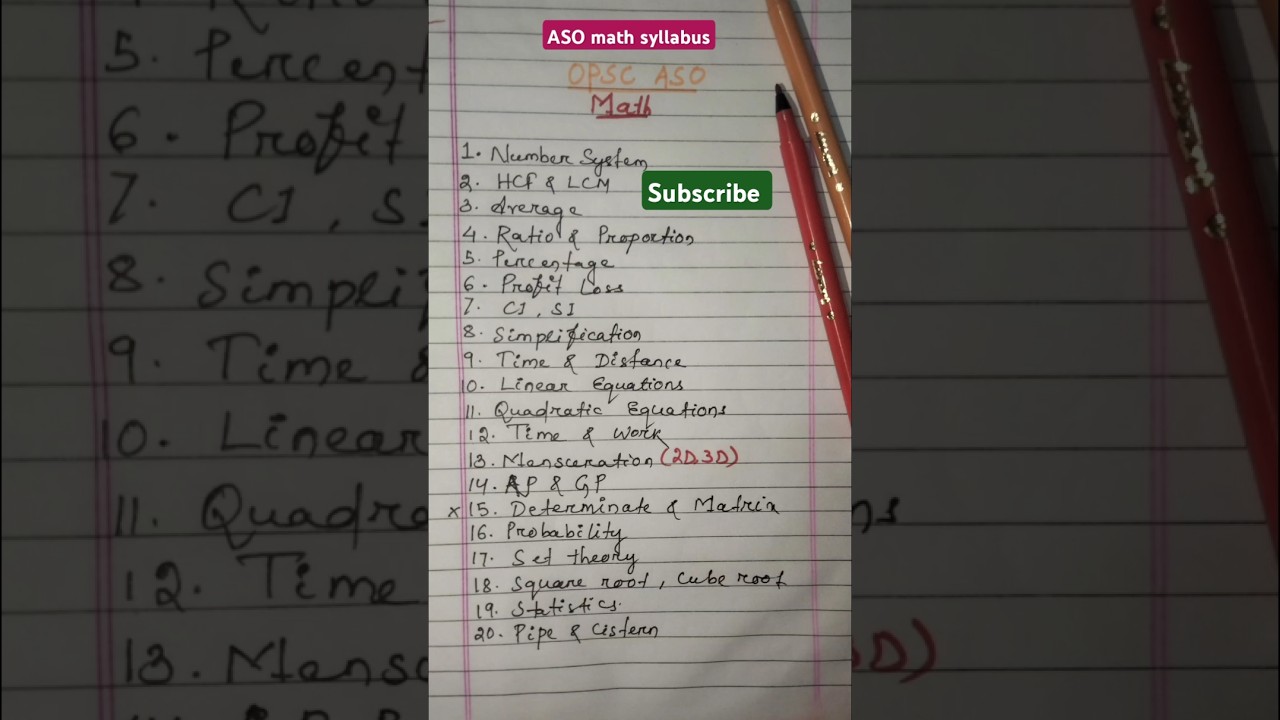 ASO math syllabus
OPSC ASO
Math
1. Number System
2. HCF & LCM
Subscribe
3. Average
4. Ratio & Proportion
5. Percentage
6. Profit Loss
7. CI, SI
8. Simplification
9. Time & Distance
10. Linear Equations
11. Quadratic Equations
12. Time & Work
13. Mensceration (2D, 3D)
14. AP & GP
x 15. Determinate & Matrix
16. Probability
17. Set theory
18. Square root, Cube root
19. Statistics.
20. Pipe & Cistern
5. Percent
6. Profit
7. CI, S
8. Simpli
9. Time &
10. Linear
11. Quadra
12. Time
13. Mensc
ns
D)